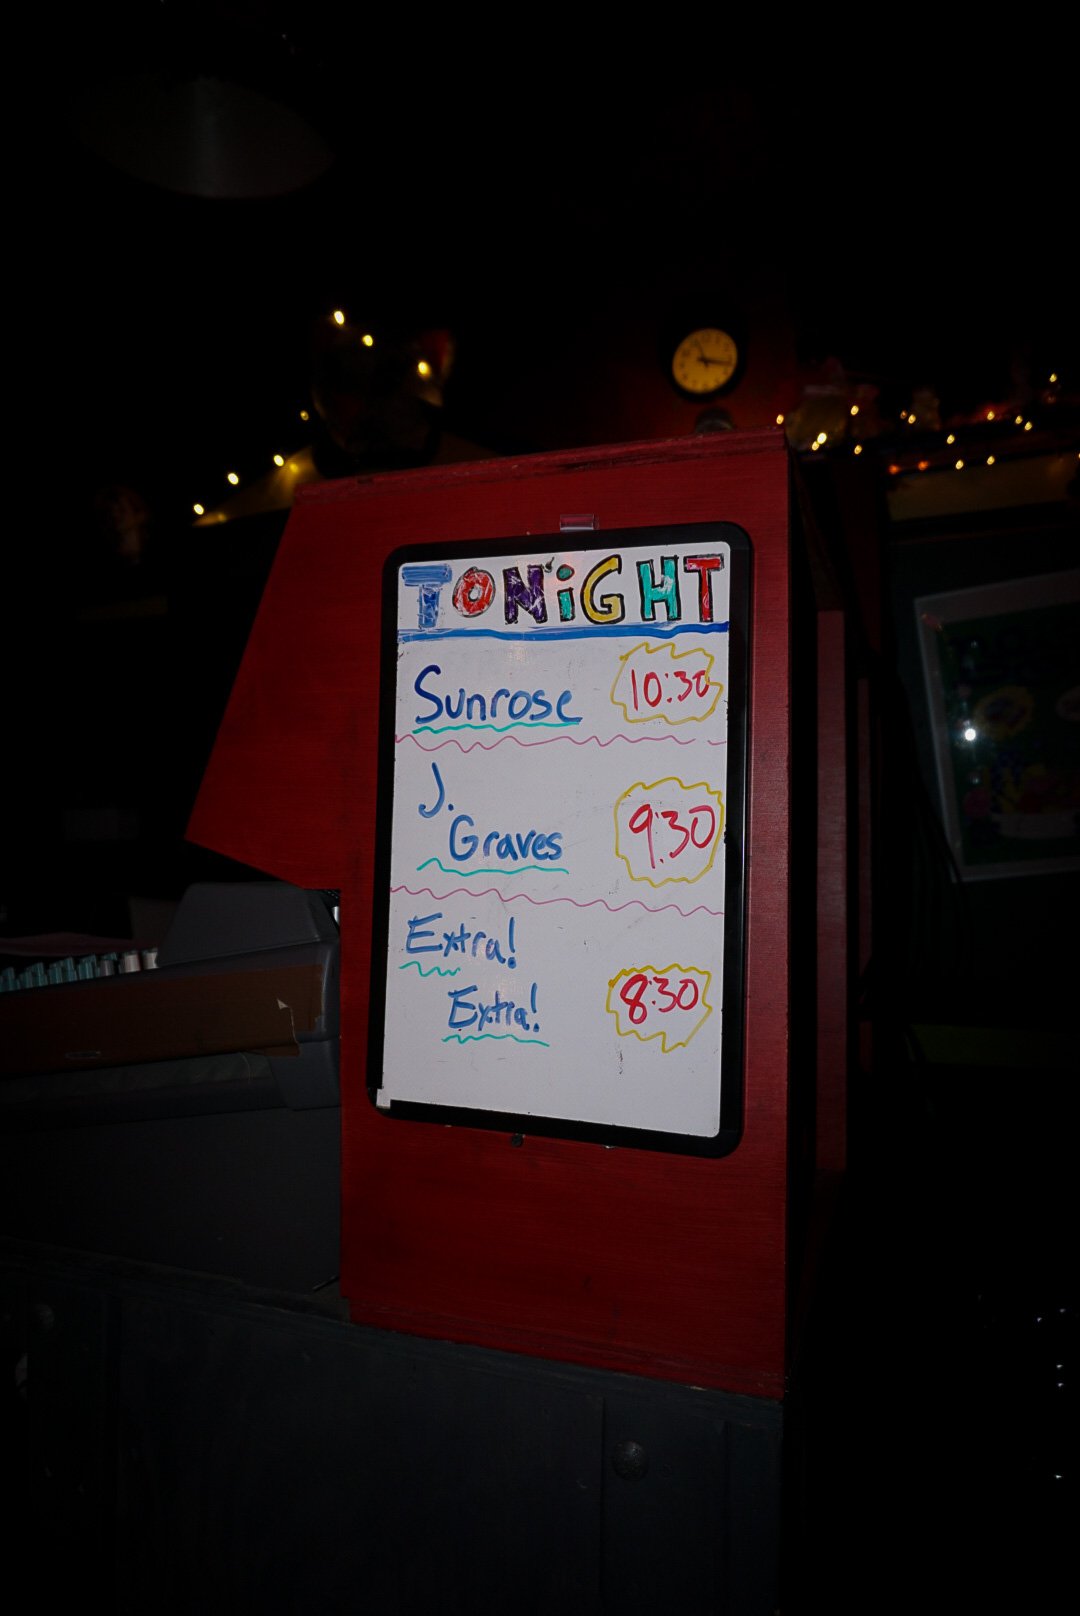 TONiGHT
Sunrose 10:30
J.
Graves 9:30
Extra!
Extra! 8:30